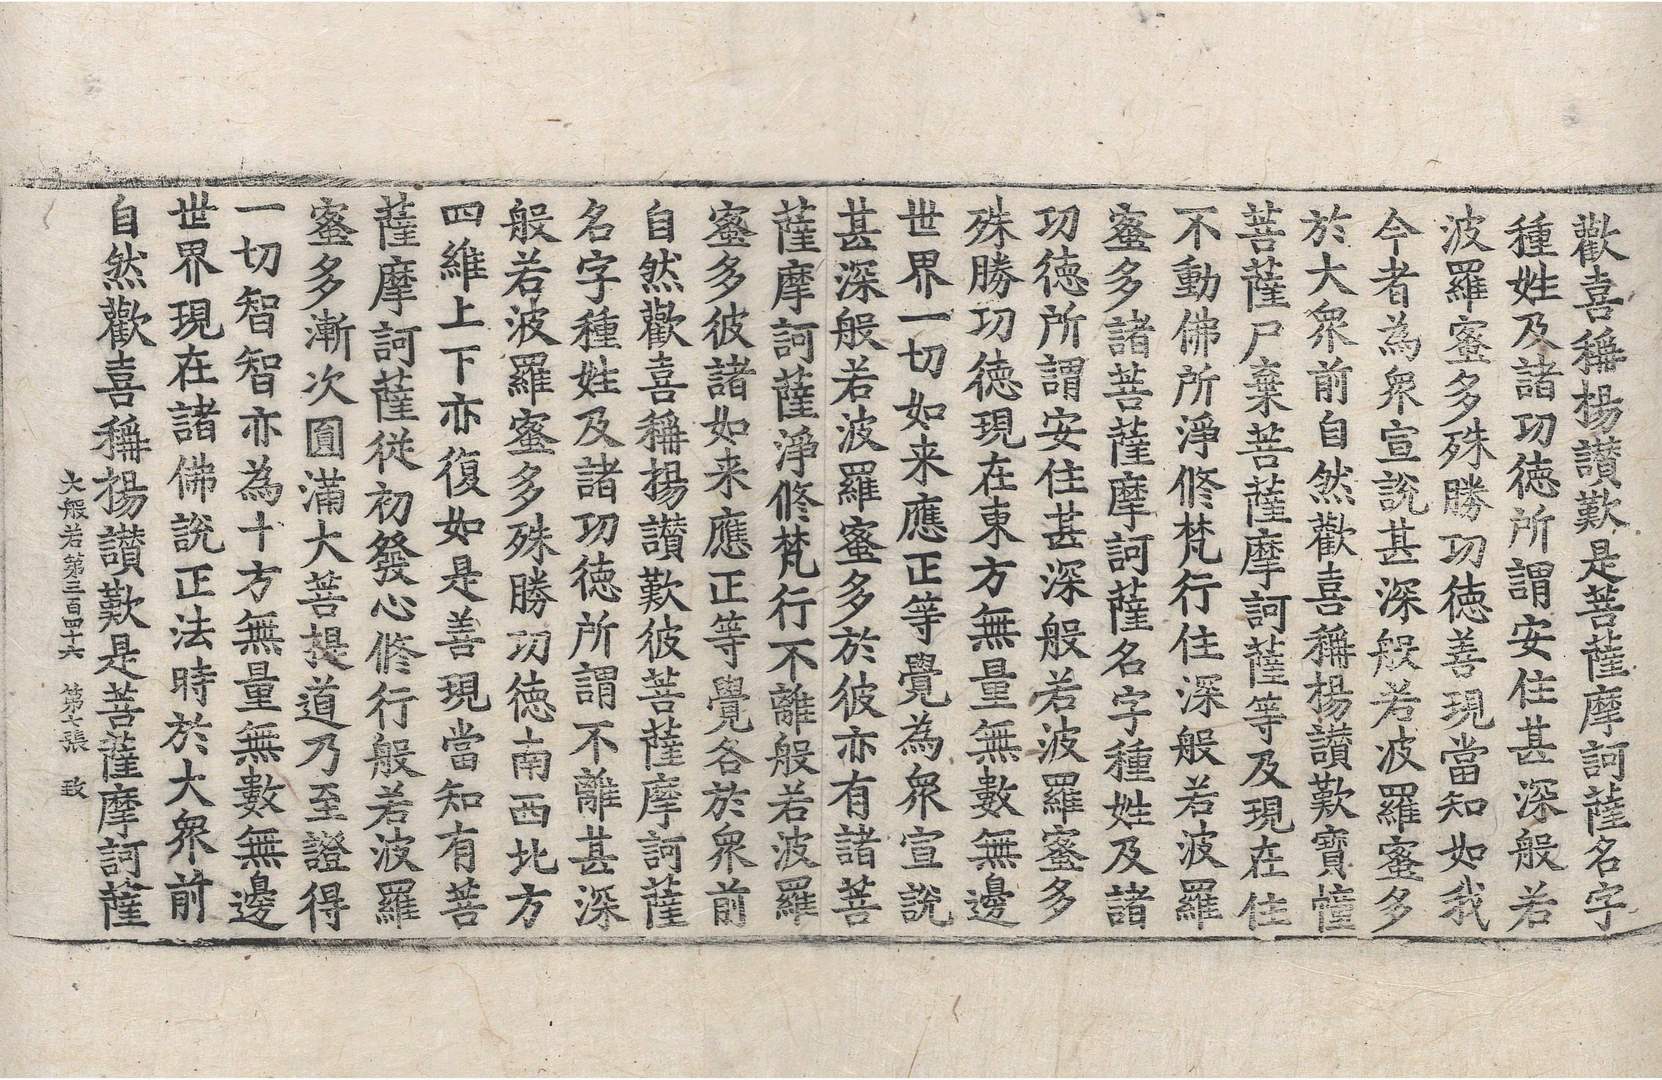 歡喜稱揚讃歎是菩薩摩訶薩名字
種姓及諸功徳所謂安住甚深般若
波羅蜜多殊勝功徳善現當知如我
今者為衆宣說甚深般若波羅蜜多
於大衆前自然歡喜稱揚讃歎寶幢
菩薩尸棄菩薩摩訶薩等及現在住
不動佛所淨修梵行住深般若波羅
蜜多諸菩薩摩訶薩名字種姓及諸
功徳所謂安住甚深般若波羅蜜多
殊勝功徳現在東方無量無數無邊
世界一切如来應正等覺為衆宣說
甚深般若波羅蜜多於彼亦有諸菩
薩摩訶薩淨修梵行不離般若波羅
蜜多彼諸如来應正等覺各於衆前
自然歡喜稱揚讃歎彼菩薩摩訶薩
名字種姓及諸功徳所謂不離甚深
般若波羅蜜多殊勝功徳南西北方
四維上下亦復如是善現當知有菩
薩摩訶薩從初發心修行般若波羅
蜜多漸次圓滿大菩提道乃至證得
一切智智亦為十方無量無數無邊
世界現在諸佛說正法時於大衆前
自然歡喜稱揚讃歎是菩薩摩訶薩
大般若第三百四十六 第六張 致